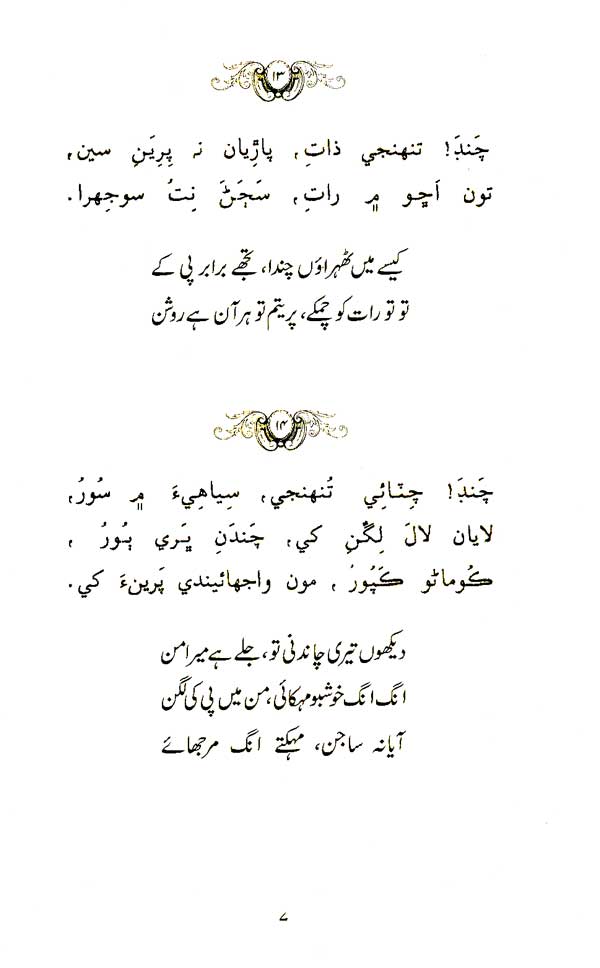 ۱۳
چَنڊَ! تنھنجي ذاتِ، پاڙِيان نہ پِريَنِ سين،
تون اَڇو ۾ راتِ، سَڄَڻَ نِتُ سوجهرا.
کیسے میں ٹھہراؤں چندا، تجھے برابر پی کے
تو تو رات کو چمکے، پریتم تو ہر آن ہے روشن
۱۴
چَنڊَ! چِٽائِي تُنھنجي، سِياھِيءَ ۾ سُورُ،
لايان لالَ لِڱَنِ کي، چَندَنِ ڀَري ٻُورُ ،
ڪُوماڻو ڪَپُورُ ، مون واجهائيندي پَرينءَ کي.
دیکھوں تیری چاندنی تو، جلے ہے میرا من
انگ انگ خوشبو مہکائی، من میں پی کی لگن
آیا نہ ساجن، مہکتے انگ مرجھائے
۷